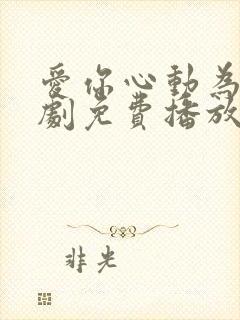 愛你心動為
劇免費播放
非光